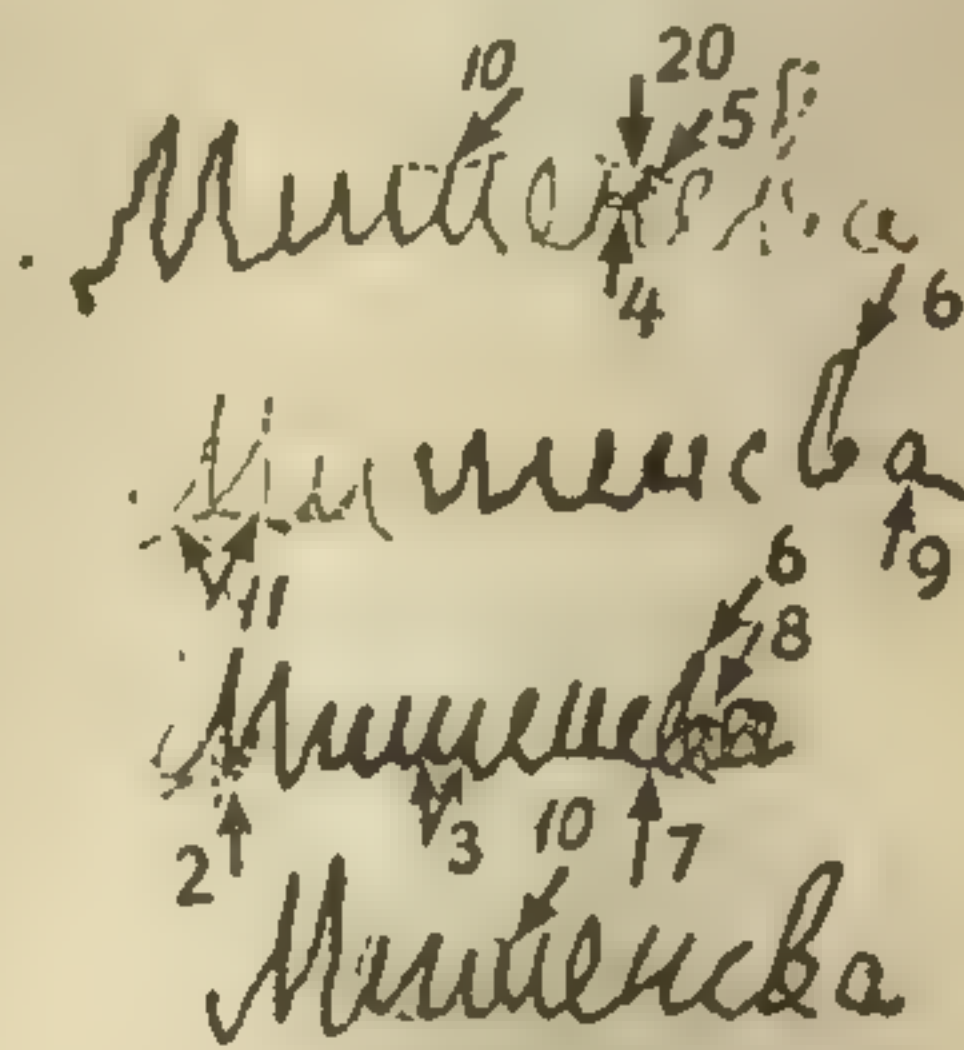 10 20 5
Мишенева
4 6
Мишенева
11 9
6
8
Мишенева
2 3 10 7
Мишенева